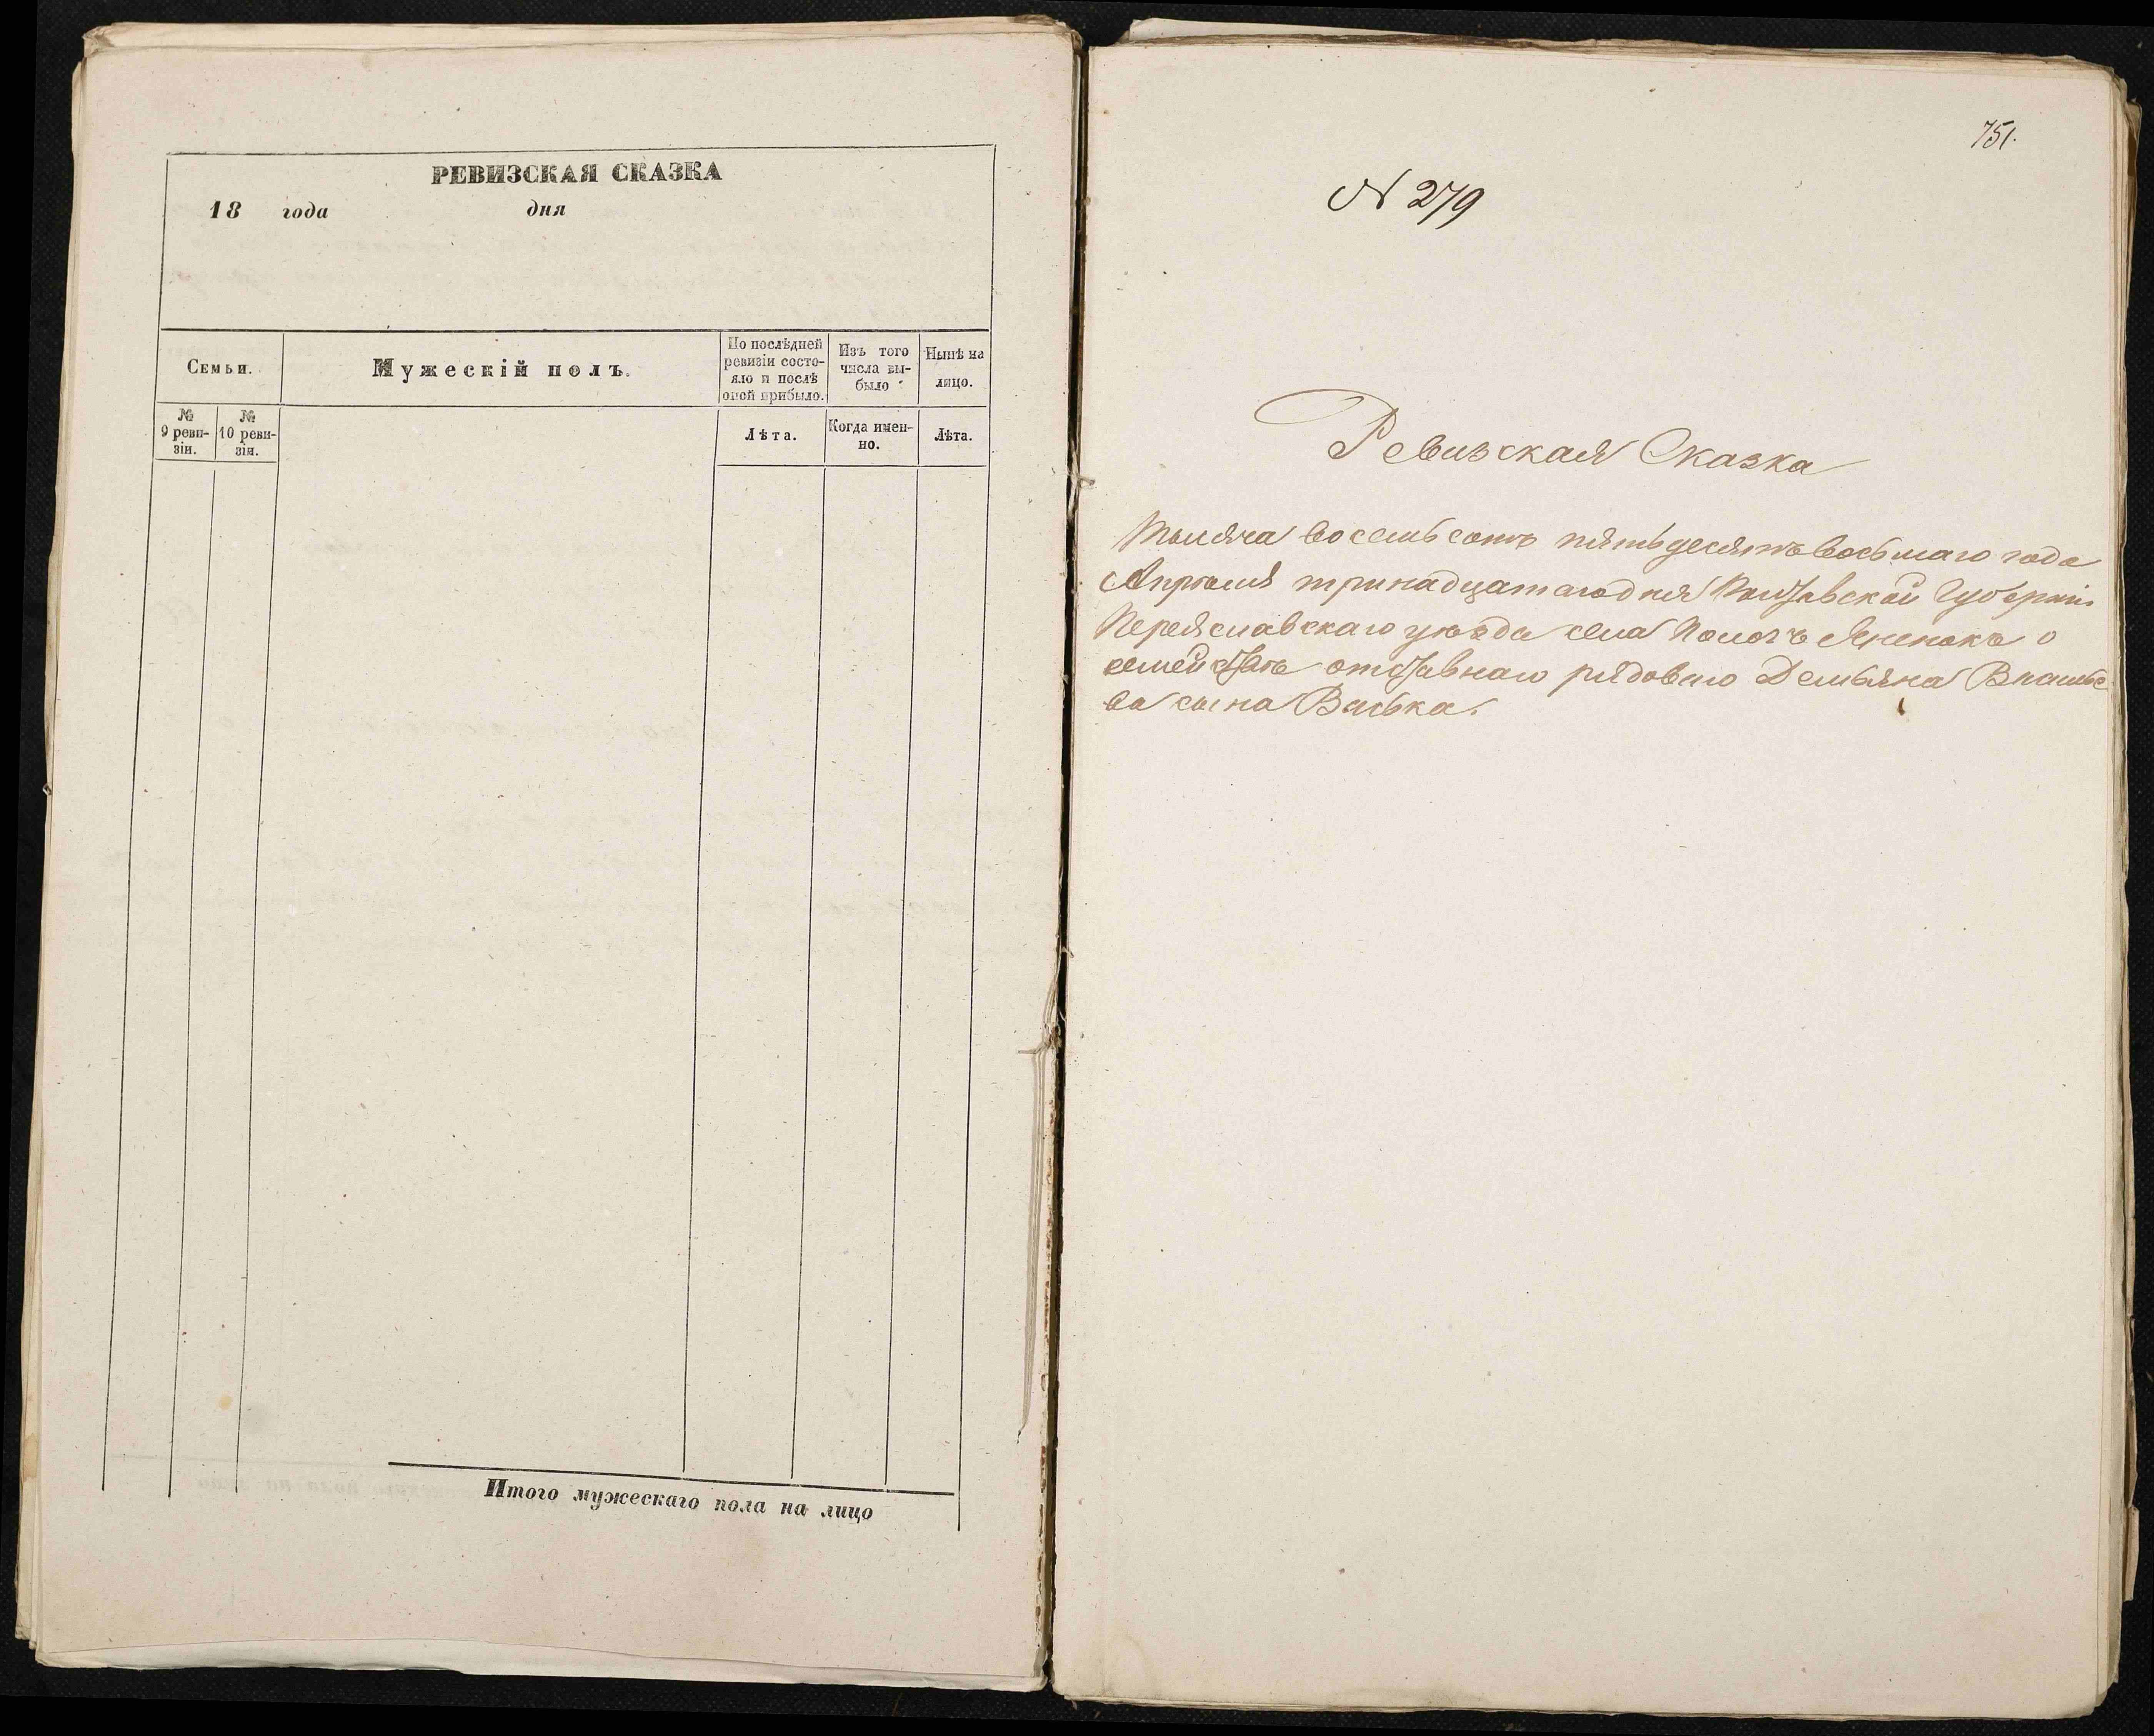 РЕВИЗСКАЯ СКАЗКА
18 года дня
Семьи.
Мужескій полъ.
По послѣдней
ревизіи состо-
яло и послѣ
оной прибыло.
Изъ того
числа вы-
было
Нынѣ на
лицо.
№
9 реви-
зіи.
№
10 реви-
зіи.
Лѣта.
Когда имен-
но.
Лѣта.
Итого мужескаго пола на лицо
751.
N 279
Ревизская Сказка
Тысяча восемьсотъ пятьдесятъ восьмаго года
Апрѣля тринадцатаго дня Полтавской Губерніи
Переяславскаго уѣзда села Помоклъ о
семействѣ отставнаго рядоваго Демьяна
ва сына Васька.